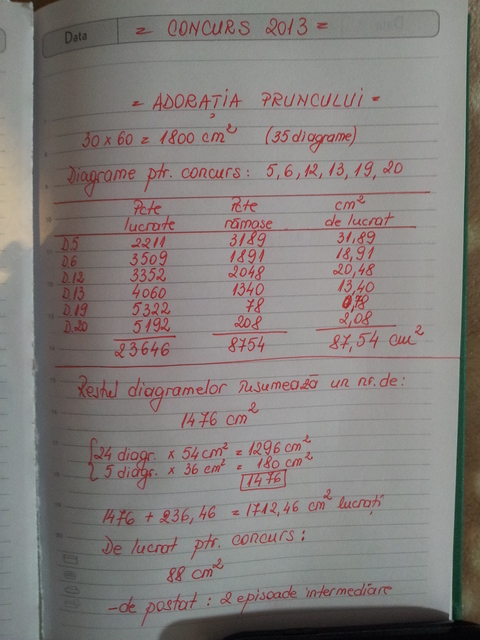 Data
= CONCURS 2013 =
= ADORAȚIA PRUNCULUI =
30 x 60 = 1800 cm² (35 diagrame)
Diagrame ptr. concurs: 5, 6, 12, 13, 19, 20
Pcte Pcte cm²
lucrate rămase de lucrat
D.5 2211 3189 31,89
D.6 3509 1891 18,91
D.12 3352 2048 20,48
D.13 4060 1340 13,40
D.19 5322 78 0,78
D.20 5192 208 2,08
23646 8754 87,54 cm²
Restul diagramelor însumează un nr. de:
1476 cm²
24 diagr. x 54 cm² = 1296 cm²
5 diagr. x 36 cm² = 180 cm²
1476
1476 + 236,46 = 1712,46 cm² lucrați
De lucrat ptr. concurs:
88 cm²
- de postat : 2 episoade intermediare